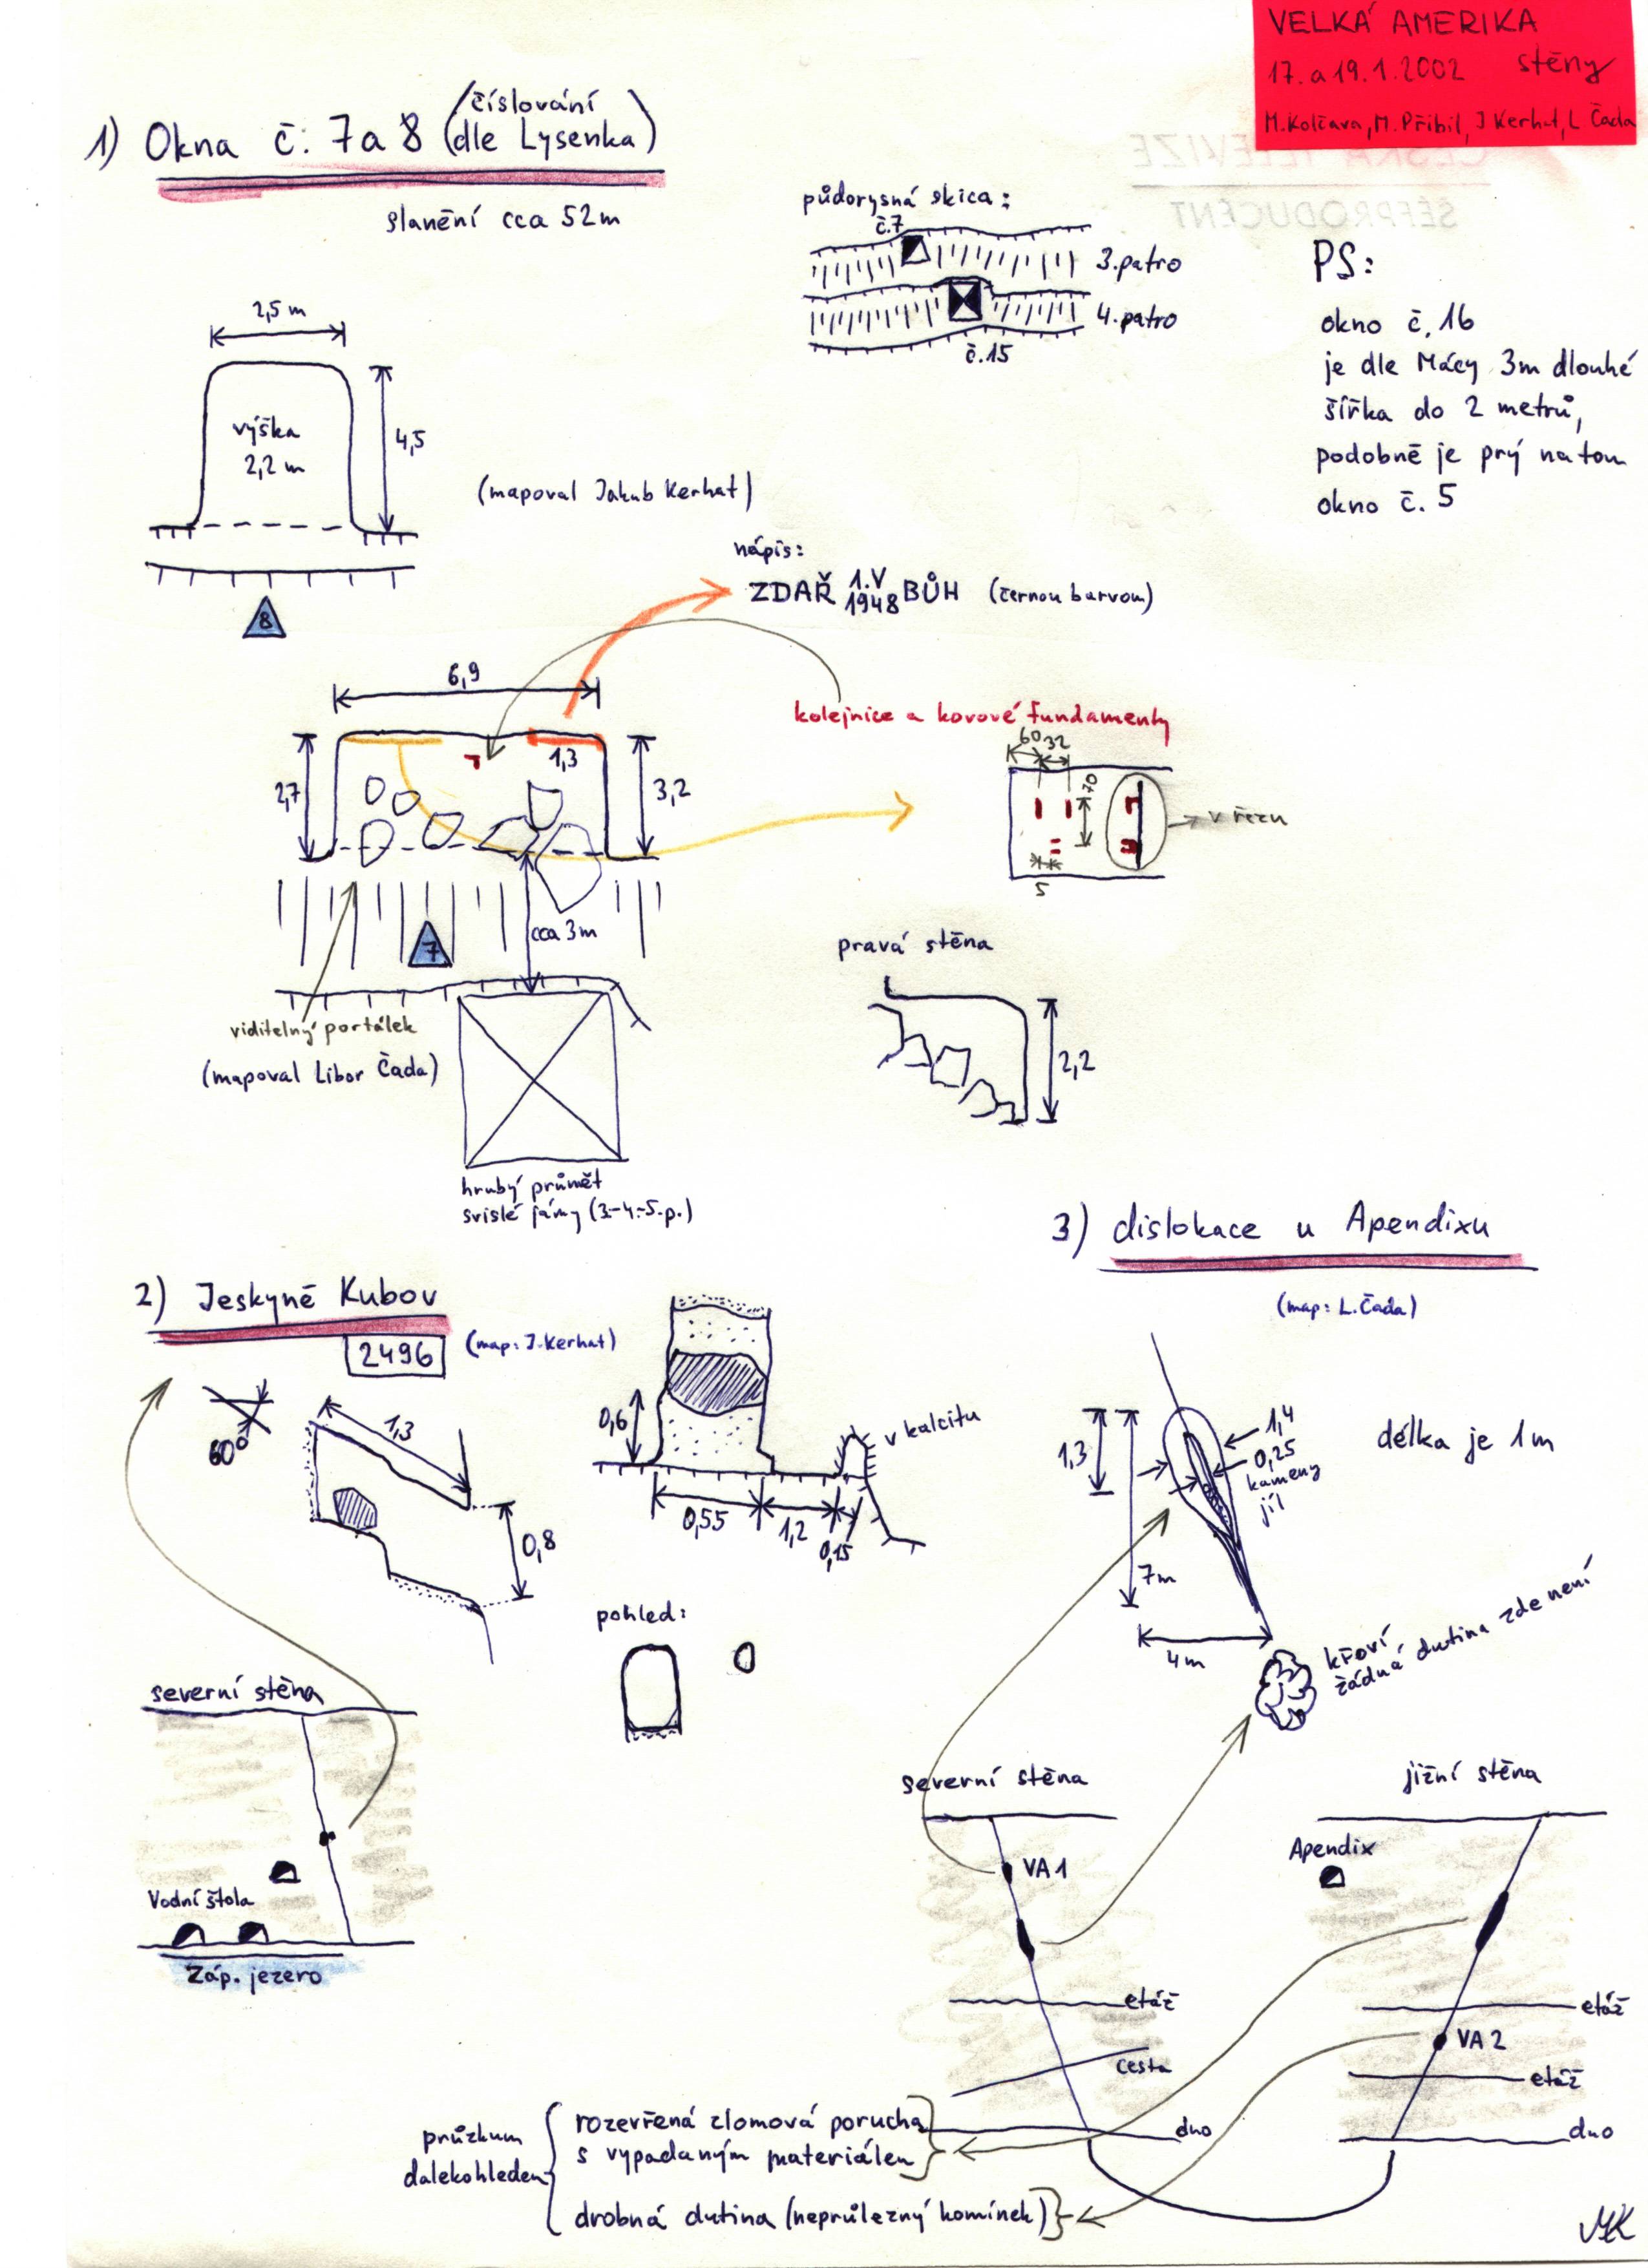 VELKÁ AMERIKA
17. a 19.1.2002 stěny
M. Kolčava, M. Přibil, J Kerhat, L Čada
ČESKÁ TELEVIZE
ŠÉFPRODUCENT
1) Okna č. 7 a 8 (číslování
dle Lysenka)
slanění cca 52m
půdorysná skica:
č.7
3. patro
4. patro
č.15
PS:
okno č. 16
je dle Mácy 3m dlouhé
šířka do 2 metrů,
podobně je prý na tom
okno č. 5
2,5 m
výška
2,2 m
4,5
(mapoval Jakub Kerhat)
8
nápis:
ZDAŘ 1.V
1948 BŮH (černou barvou)
6,9
kolejnice a kovové fundamenty
2,7
1,3
3,2
60
32
70
5
v řezu
7
cca 3m
viditelný portálek
(mapoval Libor Čada)
pravá stěna
2,2
hrubý průmět
svislé jámy (3.-4.-5.p.)
2) Jeskyně Kubov
2496
(map: J. Kerhat)
60°
1,3
0,8
0,6
v kalcitu
0,55
1,2
0,15
pohled:
severní stěna
Vodní štola
Záp. jezero
3) dislokace u Apendixu
(map: L. Čada)
1,3
1,4
0,25
kameny
jíl
délka je 1m
7m
4m
křoví
žádná dutina zde není
severní stěna
VA1
etáž
cesta
dno
jižní stěna
Apendix
etáž
VA2
etáž
dno
průzkum
dalekohledem
rozevřená zlomová porucha
s vypadaným materiálem
drobná dutina (neprůlezný komínek)
MK